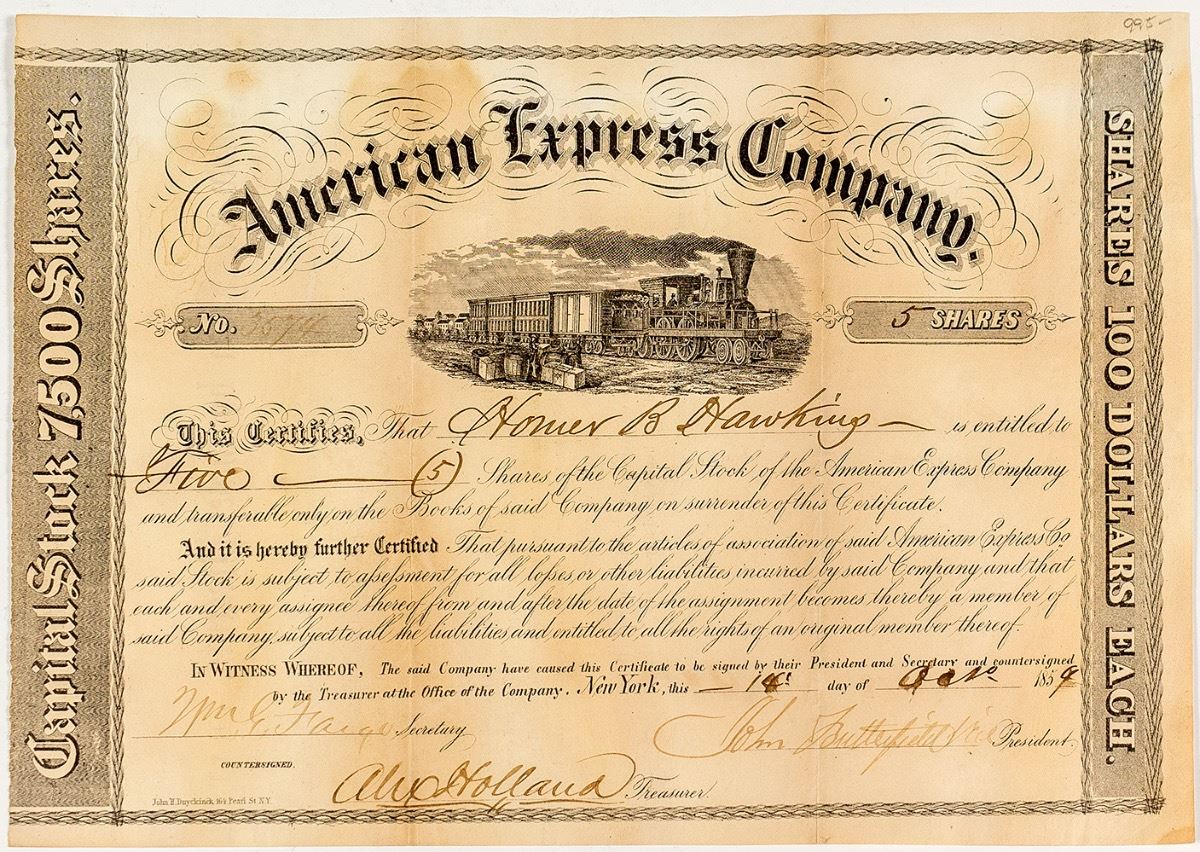 995-
Capital Stock 7,500 Shares.
American Express Company.
No.
5 SHARES
This Certifies, That Homer B Hawkins is entitled to
Five (5) Shares of the Capital Stock of the American Express Company
and transferable only on the Books of said Company on surrender of this Certificate.
And it is hereby further Certified That pursuant to the articles of association of said American Express Co
said Stock is subject to aſseſsment for all loſses or other liabilities incurred by said Company and that
each and every assignee thereof from and after the date of the assignment becomes thereby a member of
said Company, subject to all the liabilities and entitled to all the rights of an original member thereof.
IN WITNESS WHEREOF, The said Company have caused this Certificate to be signed by their President and Secretary and countersigned
by the Treasurer at the Office of the Company. New York, this day of 1859
Wm G. Fargo Secretary
John Butterfield Vice President.
COUNTERSIGNED.
Alex Holland Treasurer.
John H. Duyckinck, 164 Pearl St. N.Y.
SHARES 100 DOLLARS EACH.